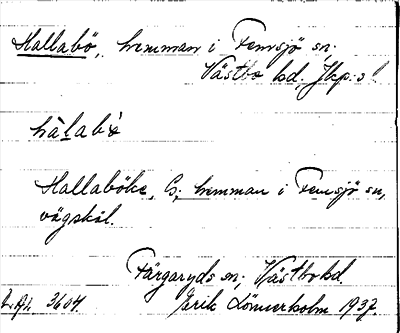 Hallabö, hemman i Femsjö sn.
Västbo hd, Jkp:s l
hàlabö̀
Hallaböke, by, hemman i Femsjö sn,
vägskäl.
Färgaryds sn, Västbo hd.
3604. Erik Lönnerholm 1937